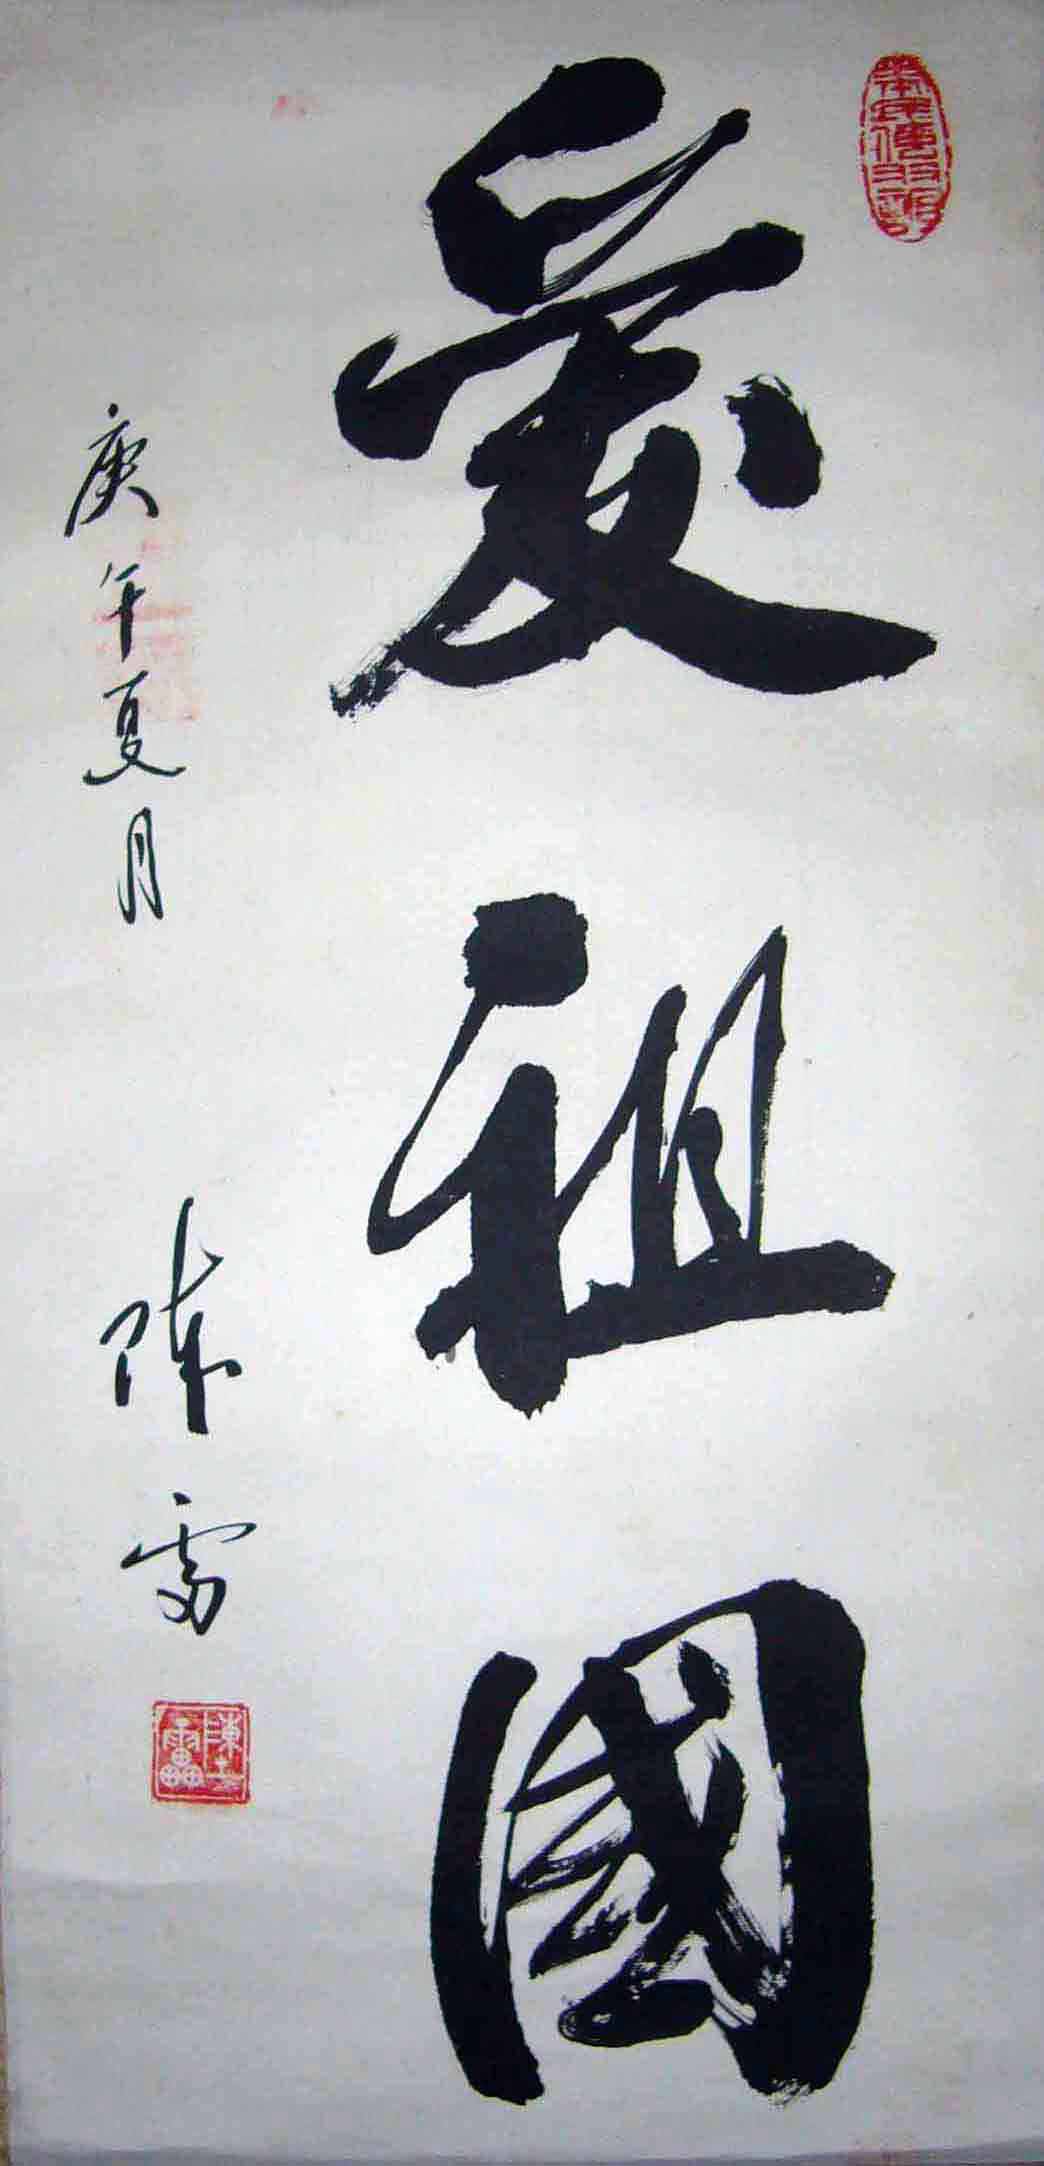 愛祖國
庚午夏月
陳雷